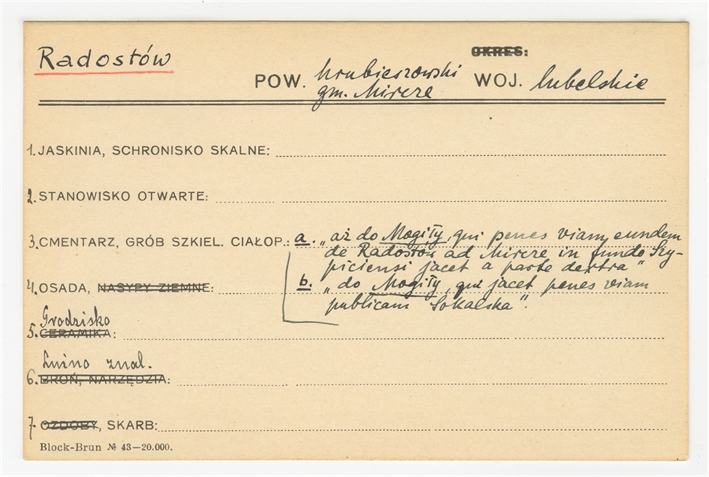 Radostów
OKRES:
POW. hrubieszowski WOJ. lubelskie
gm. Mircze
1. JASKINIA, SCHRONISKO SKALNE:
2. STANOWISKO OTWARTE:
3. CMENTARZ, GRÓB SZKIEL. CIAŁOP.: a. „aż do Mogiły, qui penes viam eundem
de Radostów ad Mircze in fundo Szy-
piciensi jacet a parte dextra"
4. OSADA, NASYPY ZIEMNE: b. „do Mogiły, qui jacet penes viam
publicam Sokalska".
Grodzisko
5. CERAMIKA:
Luźno znal.
6. BROŃ, NARZĘDZIA:
7. OZDOBY, SKARB:
Block-Brun № 43—20.000.